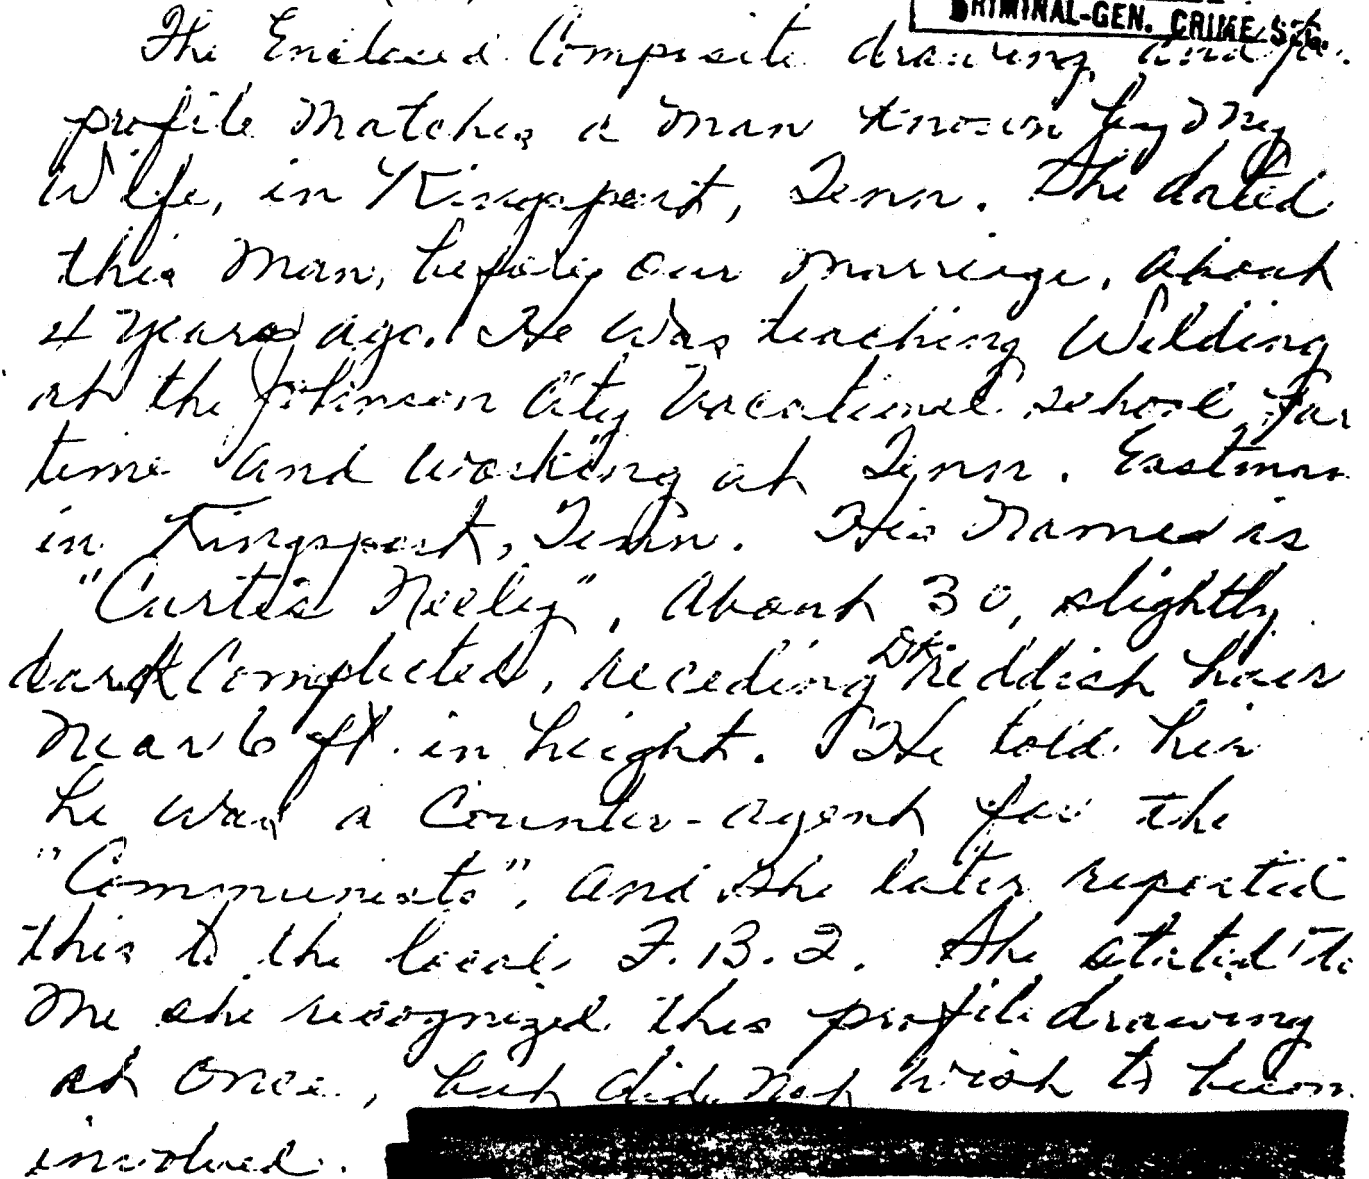 CRIMINAL-GEN. CRIME
The Enclosed Composite drawing and
profile matches a man known by my
Wife, in Kingsport, Tenn. She dated
this man, before our marriage, about
4 years ago. He was teaching Welding
at the Johnson City Vocational school
time and working at Tenn. Eastman
in Kingsport, Tenn. His Name is
"Curtis Neeley", About 30, slightly
dark Complected, receding Dk. reddish hair
Near 6 ft. in height. He told her
he was a Counter-agent for the
"Communists", and she later reported
this to the local F.B.I. She stated to
me she recognized this profile drawing
at once, but did not wish to
involved.